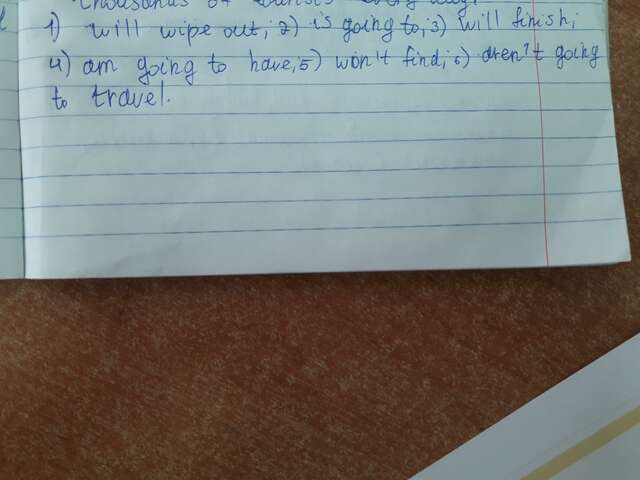 thousands of tourists every day.
1) will wipe out; 2) is going to; 3) will finish;
4) am going to have; 5) won't find; 6) aren't going
to travel.